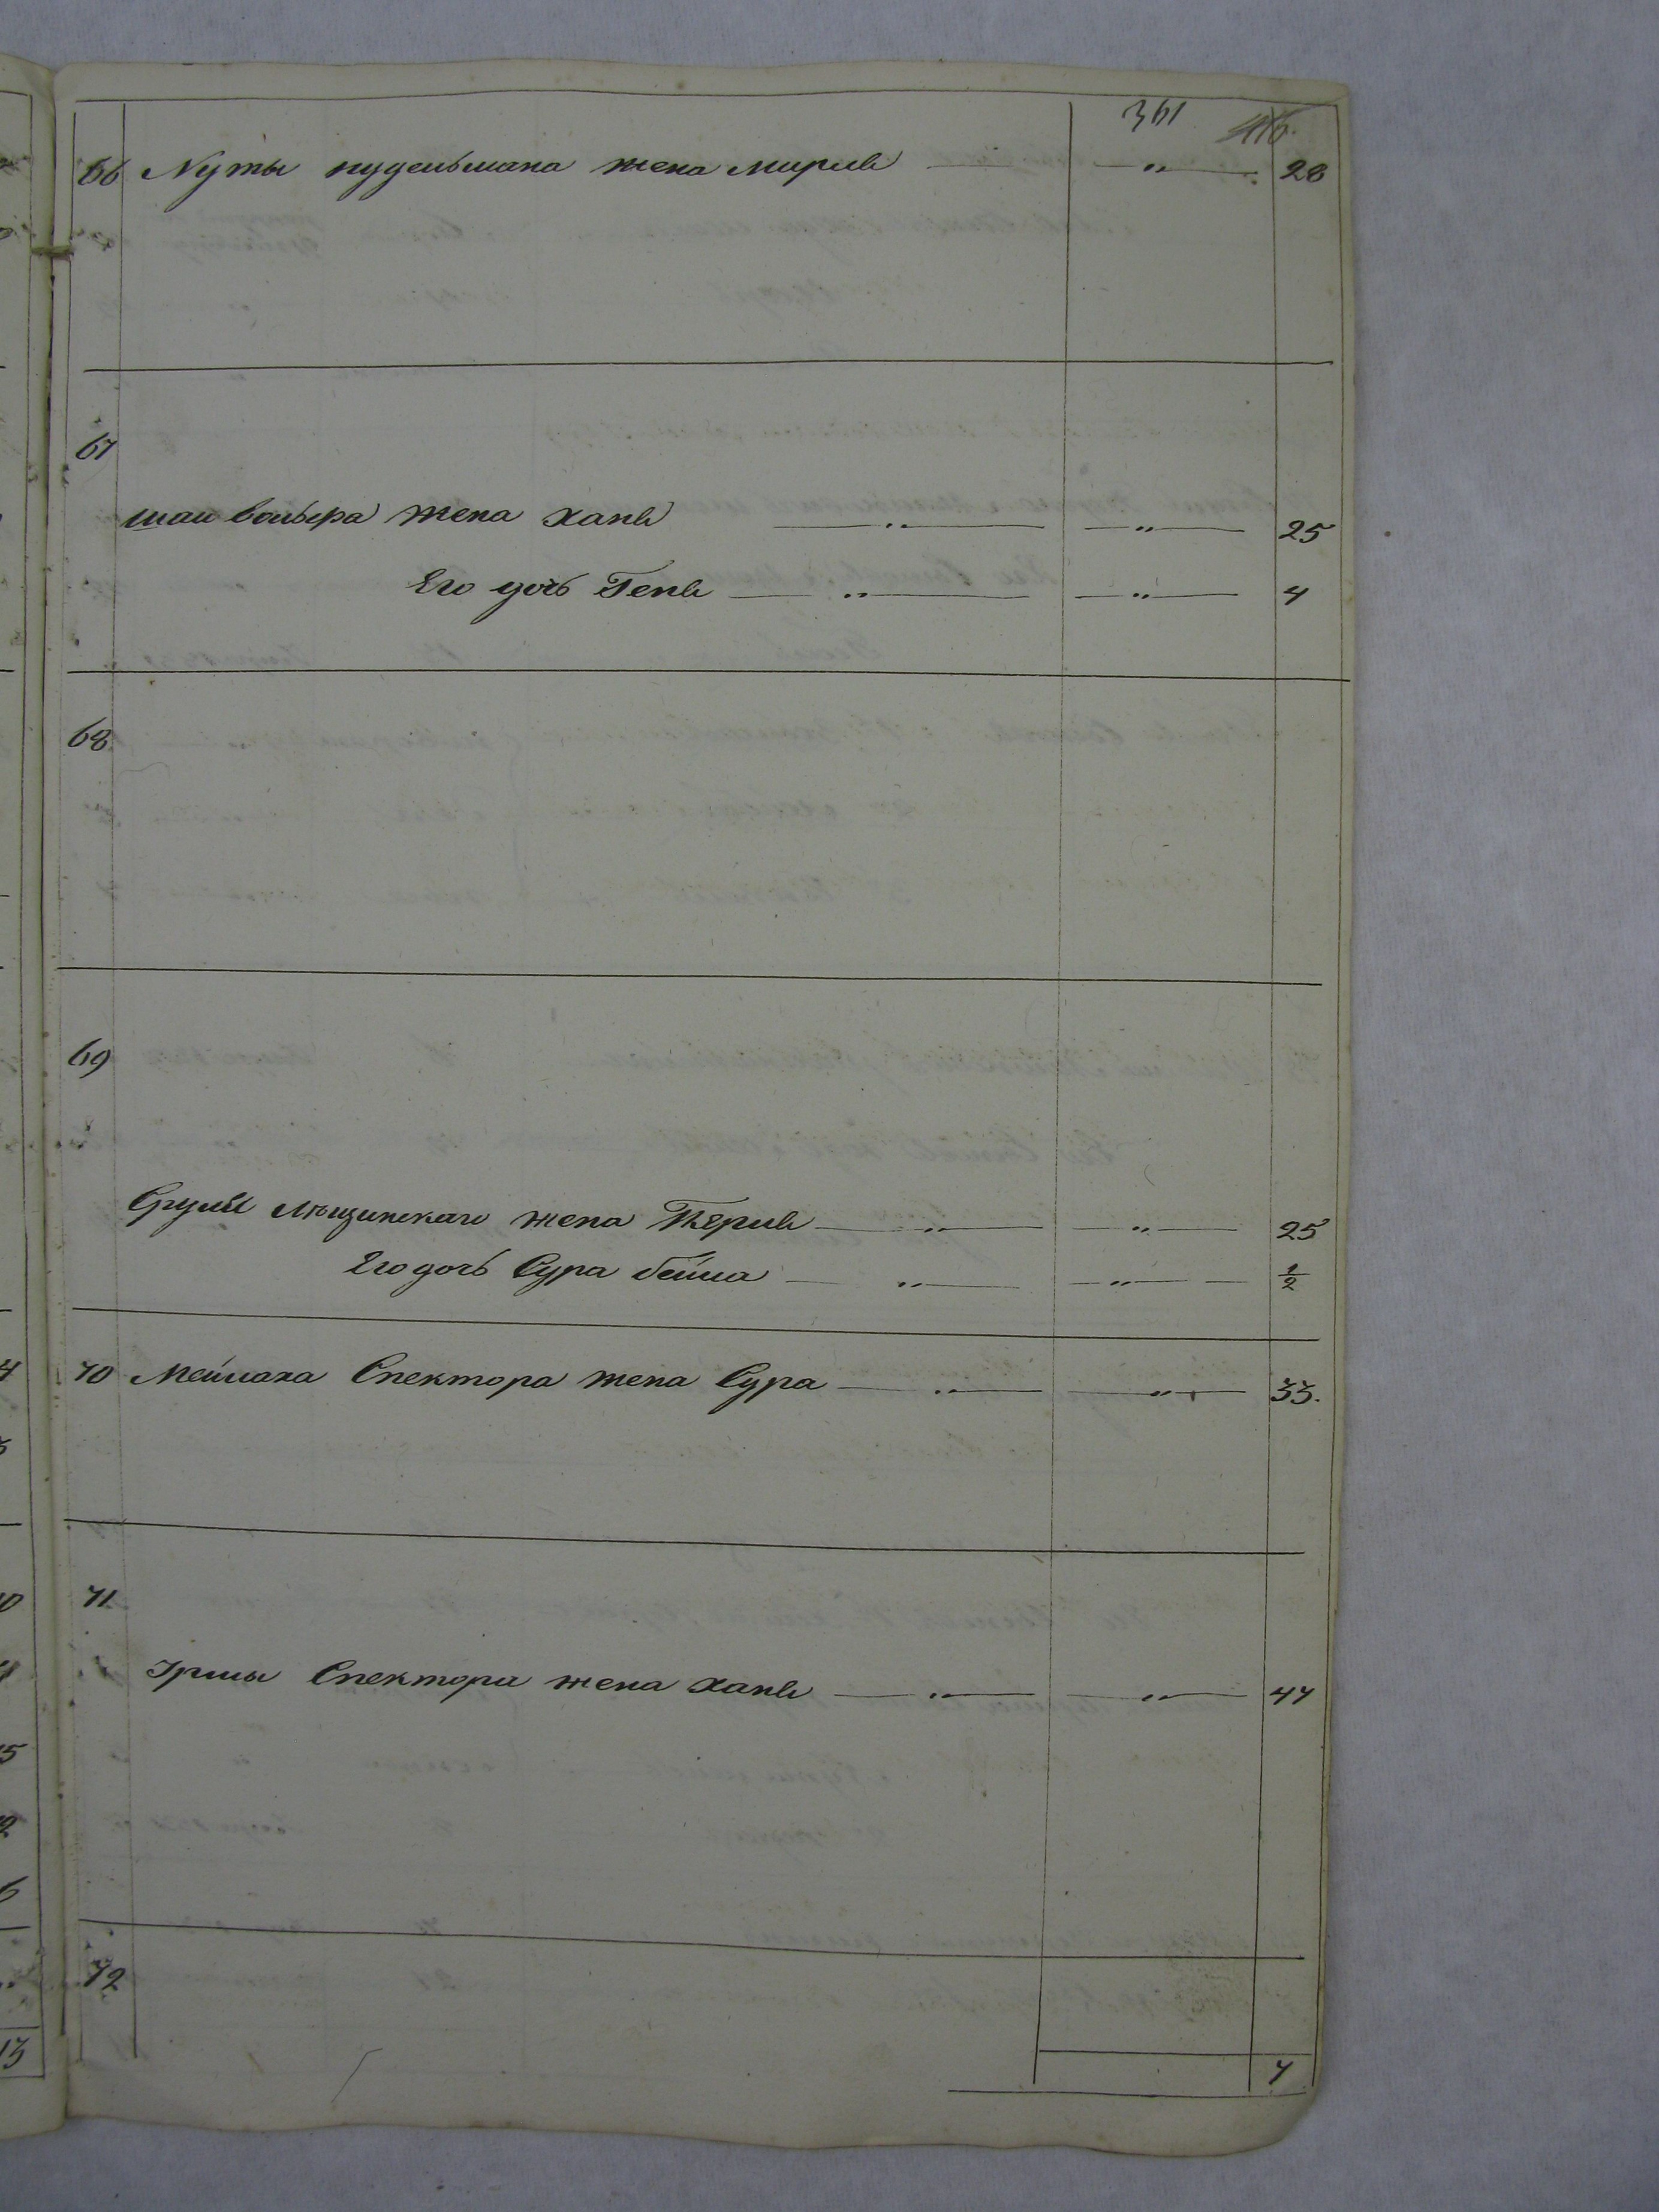 361 416.
66 Нуты нудельмана жена Мирля — „ — 28
67
шаи вольера жена ханя — „ — „ — 25
Его дочь Геня — „ — „ — 4
68
69
Срулія Лещинскаго жена Перля — „ — „ — 25
Его дочь Сура бейла — „ — „ — 1/2
70 Меилаха Спектора жена Сура — „ — „ — 33.
71
Ірмы Спектора жена ханя — „ — „ — 47
72
7